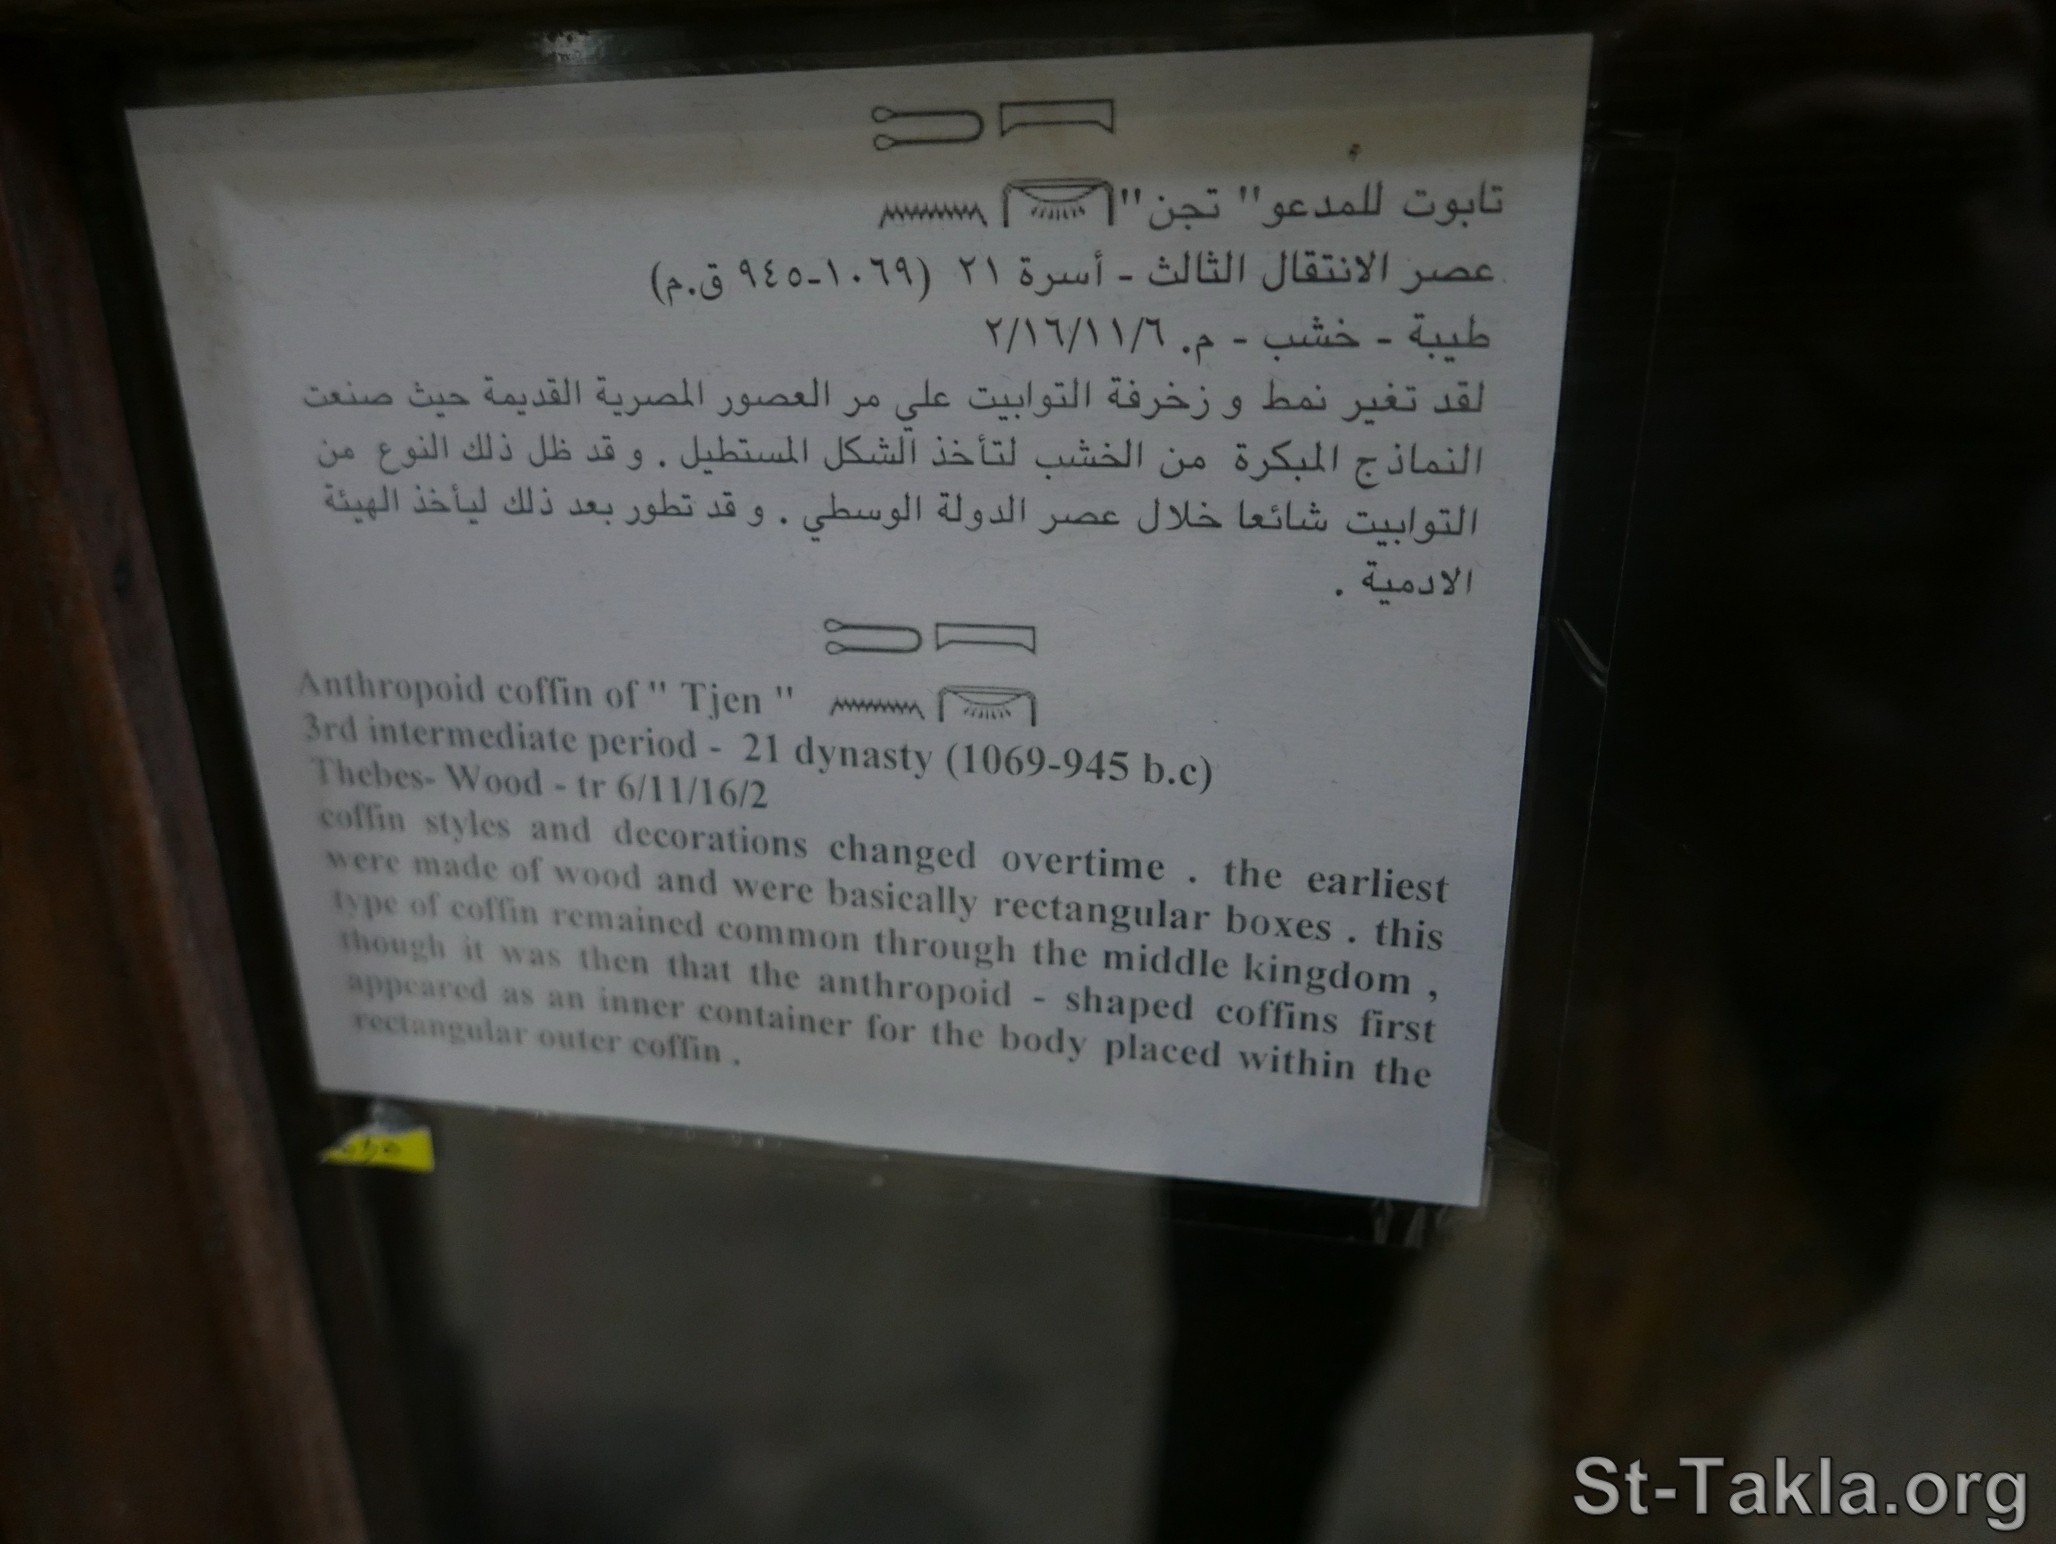 تابوت للمدعو" تجن"
عصر الانتقال الثالث - أسرة ٢١ (١٠٦٩-٩٤٥ ق.م)
طيبة - خشب - م. ٢/١٦/١١/٦
لقد تغير نمط و زخرفة التوابيت علي مر العصور المصرية القديمة حيث صنعت
النماذج المبكرة من الخشب لتأخذ الشكل المستطيل . و قد ظل ذلك النوع من
التوابيت شائعا خلال عصر الدولة الوسطي . و قد تطور بعد ذلك ليأخذ الهيئة
الادمية .
Anthropoid coffin of " Tjen "
3rd intermediate period - 21 dynasty (1069-945 b.c)
Thebes- Wood - tr 6/11/16/2
coffin styles and decorations changed overtime . the earliest
were made of wood and were basically rectangular boxes . this
type of coffin remained common through the middle kingdom ,
though it was then that the anthropoid - shaped coffins first
appeared as an inner container for the body placed within the
rectangular outer coffin .
St-Takla.org